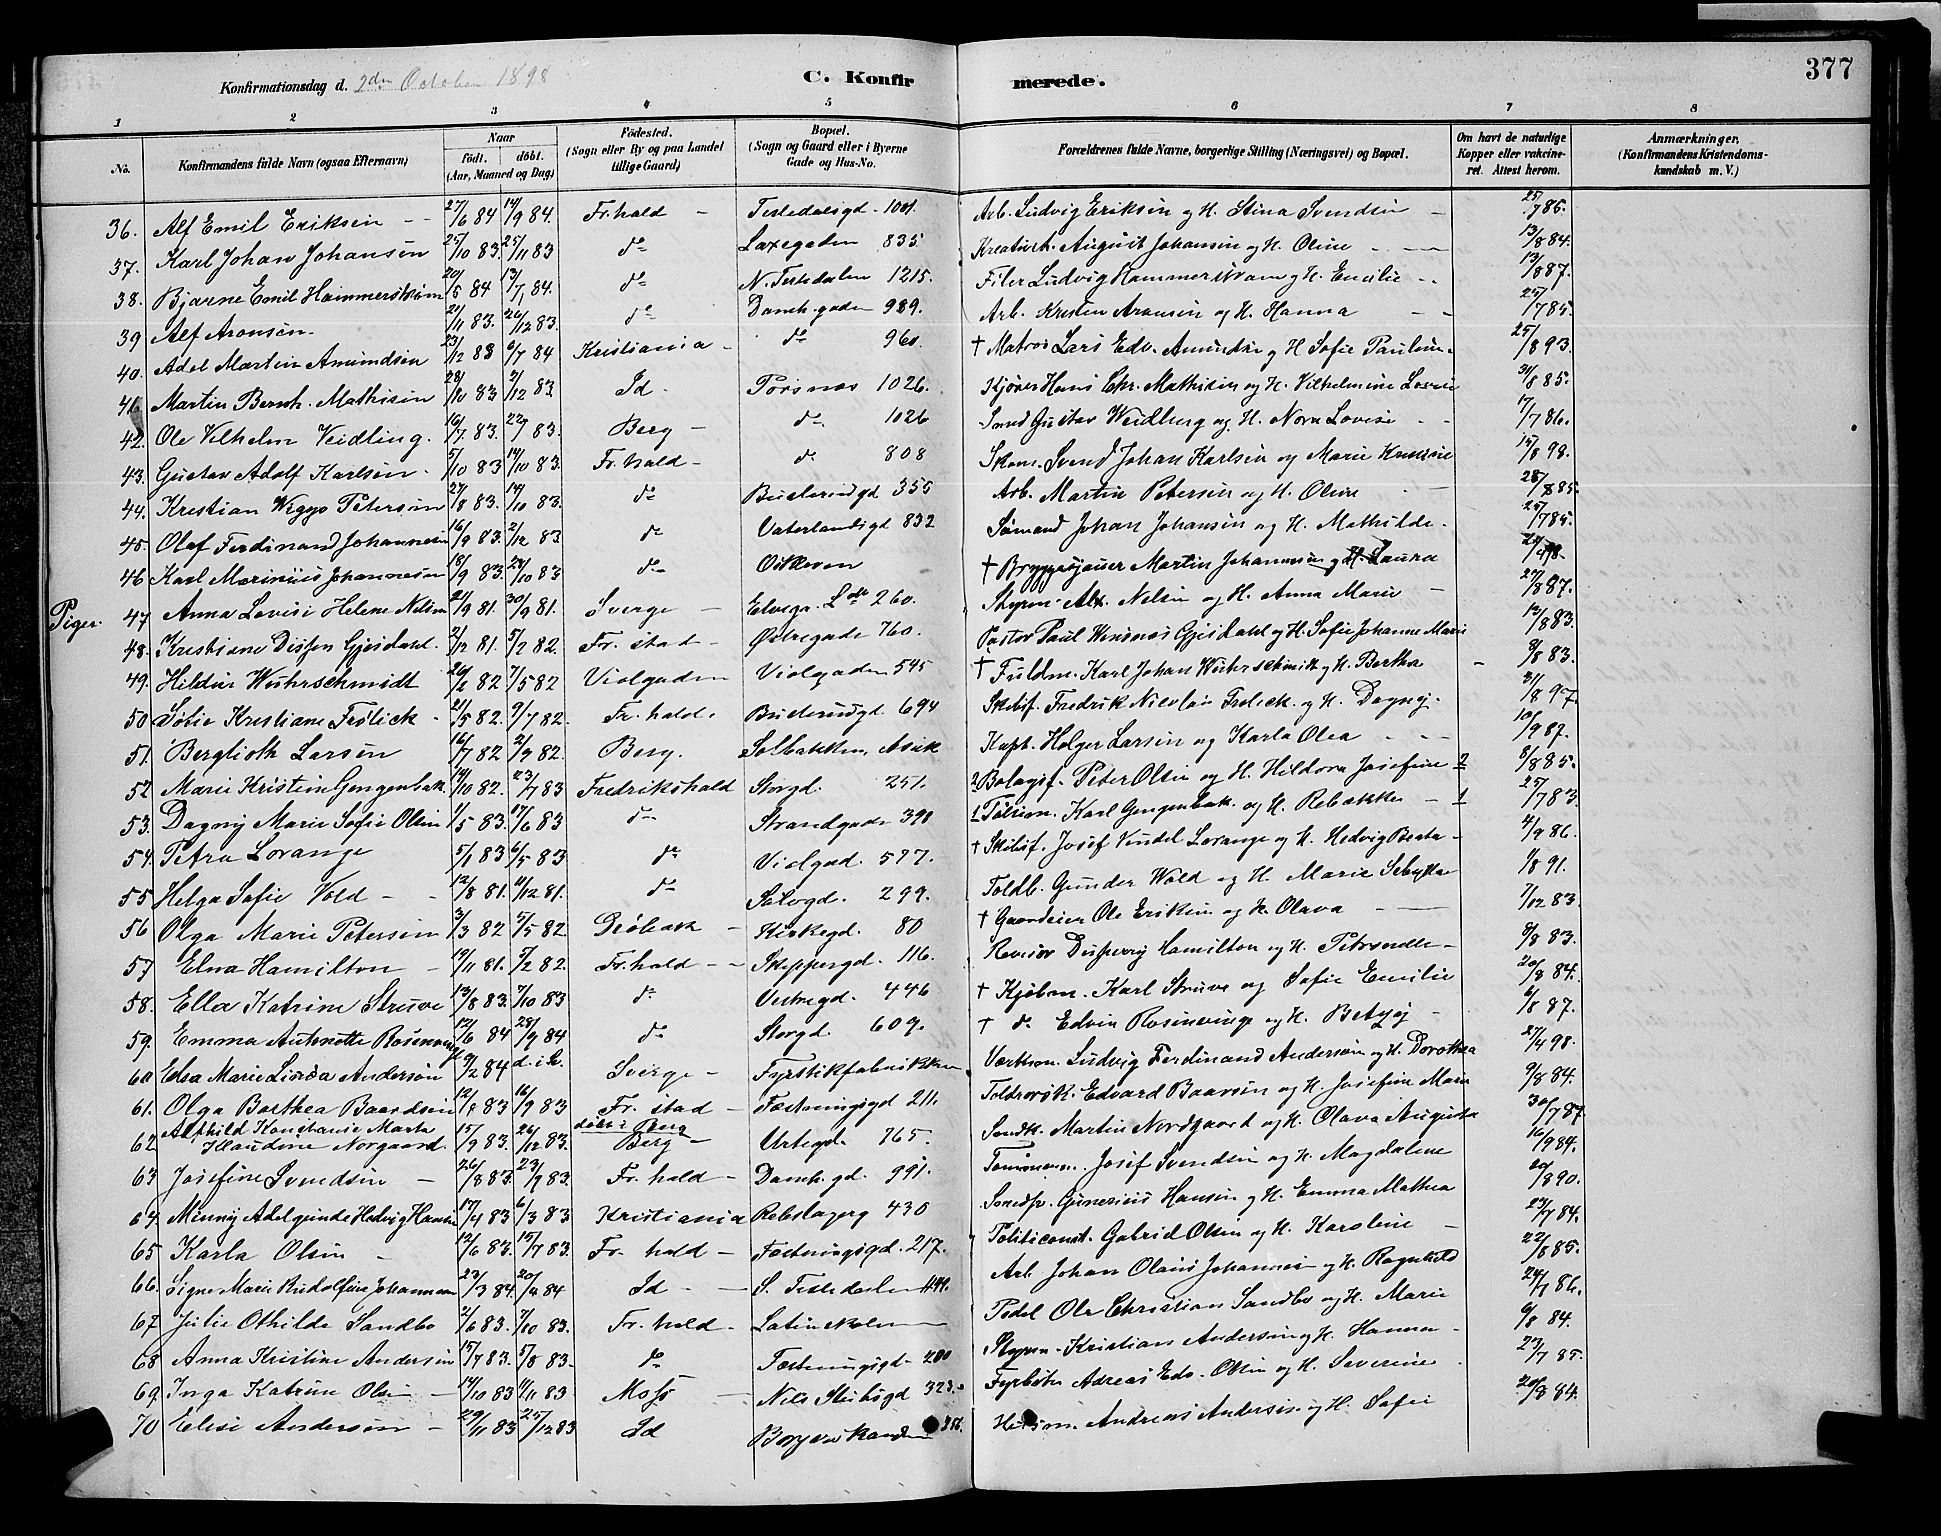 377
Konfirmationsdag d. 2den October 1898
C. Konfirmerede.
1 2 3 4 5 6 7 8
No.
Konfirmandens fulde Navn (ogsaa Efternavn)
Naar
födt. döbt.
(Aar, Maaned og Dag)
Födested.
(Sogn eller By og paa Landet tillige Gaard)
Bopæl.
(Sogn og Gaard eller i Byerne Gade og Hus-No.
Forældrenes fulde Navne, borgerlige Stilling (Næringsvei) og Bopæl.
Om havt de naturlige Kopper eller vakcineret. Attest herom.
Anmærkninger,
(Konfirmandens Kristendomskundskab m. V.)
36. Alf Emil Eriksen - - 27/6 84 14/9 84. Fr.hald - Tistedalsgd. 1001. Arb. Ludvig Eriksen og H. Stina Svendsen - 25/7 85.
37. Karl Johan Johansen 25/10 83. 25/11 83 do Laxegaden 835 August Johansen og H. Oline - 13/8 84.
38. Bjarne Emil Hammerstrøm 20/5 84 13/7 84. do N. Tistedalen 1215. Filer Ludvig Hammerstrøm og H. Emilie - 13/8 87.
39 Alf Aronsen. 21/11 83. 26/12 83. do Damh.gaden 989. Arb. Kristen Aronsen og H. Hanna - - 25/7 85.
40. Adel Martin Amundsen 23/12 83 6/7 84 Kristiania - do 960. † Matros Lars Edv. Amundsen og H Sofie Pauline - 25/8 93.
41. Martin Bernh. Mathisen 28/10 83 2/12 83. Id. Torsnæs 1026. Hans Chr. Mathisen og H. Vilhelmine Lovise 31/8 85.
42. Ole Vilhelm Veidling. 16/7 83. 22/7 83. Berg - do 1026 Gustav Weidling og H. Nora Lovise - 17/7 86.
43. Gustav Adolf Karlsen - 5/10 83 14/10 83. Fr.hald - do 808 Skom. Svend Johan Karlsen og Marie Kristine 15/8 98.
44. Kristian Viggo Petersen 27/8 83. 14/10 83. do Busterudgd 355 Arb. Martin Petersen og H. Oline - 28/8 85.
45. Olaf Ferdinand Johannesen 16/9 83. 2/12 83 do Vaterlandsgd 832 Sømand Johan Johansen og H. Mathilde. 25/7 85.
46 Karl Marinius Johannesen 18/9 83. 24/10 83 do † Bryggesjauer Martin Johannesen og H. Laura
Piger. 47 Anna Lovise Helene Nelsen 21/9 81. 30/9 81. Sverge - 260. Styrm. Alx. Nelsen og H. Anna Marie - 27/8 87.
48. Kristiane Disen Gjesdahl. 2/12 81. 5/2 82. Fr. stad - Østregade 760. Pastor Paul Gjesdahl og H. Sofie Johanne Marie 12/8 83.
49. Hildur Wuhrschmidt 26/2 82 7/5 82 Violgaden Violgaden 545 † Fuldm. Karl Johan Wuhrschmidt og H. Bertha - 9/8 83.
50 Sofie Kristiane Frølich - 21/5 82. 9/7 82. Fr.hald. Busterudgd 694 Skibsf. Fredrik Nicolai Frølich og H. Dagny. 31/8 97.
51. Berglioth Larsen 16/7 82 2/9 82. Berg. Solbakken, Asak Kapt. Holger Larsen og Karla Olea - 10/9 87.
52 Marie Kristine Gengenbak 19/10 82. 23/7 83 Fredrikshald Storgd. 251. 2 Bolagsf. Peter Olsen og H. Hildora Josefine 2 8/8 85.
53. Dagny Marie Sofie Olsen 1/5 83. 17/6 83 do Strandgade 398 1 Karl Gengenbak og H. Rebækka - 1 25/7 83
54. Petra Lorange 5/1 83 6/5 83 do Violgad. 577. † Skibsf. Josef Vindel Lorange og H. Hedvig Beata - 4/9 86.
55 Helga Sofie Vold - - 12/8 81. 11/12 81. do Salvgd. 299. Toldb. Gunder Wold og H. Marie 1/8 91.
56 Olga Marie Petersen 3/3 82 5/5 82. Drøbak - Kirkegd. 80 † Gaardeier Ole Eriksen og H. Olava - 7/12 83.
57 Elna Hamilton - 19/11 81. 7/2 82. Fr.hald - - Skippergd. 116. Revisor Hamilton og H. Petronelle - 9/8 83.
58. Ella Katrine Struve 13/8 83. 7/10 83 do Vestregd. 446 † Kjøbm. Karl Struve og Sofie Emilie 20/8 84.
59. Emma Antonette Rosenvinge 12/6 84 28/9 84 do Storgd. 609. † do Edvin Rosenvinge og H. Betzy - 6/8 87.
60 Elsa Marie Linda Anderson 9/2 84 Sverge - Fyrstikfabrikken Værkm. Ludvig Ferdinand Anderson og H. Dorothea 27/4 98.
61. Olga Barthea Baardsen 12/8 83 16/9 83 Fr. stad - Fæstningsgd 211. Edvard Baarsen og H. Josefine Marie 9/8 84.
62 Alfhild Konstanse Marta Klaudine Norgaard. 15/9 83. 26/12 83. døbt i Berg Berg - Urtegd. 765. Martin Nordgaard og H. Olava Augusta 30/7 87.
63 Josefine Svendsen - 26/8 83. 23/9 83. Fr.hald - Damh.gd. 991. Tømmerm. Josef Svendsen og H. Magdalene 16/9 84.
64 Minny Adelgunde Hedvig Hansen 17/4 83 6/3 83 Kristiania Rebslagerg 430 Gunerius Hansen og H. Emma Mathea 20/8 90.
65 Karla Olsen - 12/6 83. 15/7 83. Fr. hald - Fæstningsgd. 217. Politiconst. Gabriel Olsen og H. Karoline - 23/7 84.
66. Signe Marie Rudolfine Johannesen 23/3 84. 20/4 84 Id - - S. Tistedalen Arb. Johan Olaus Johannesen og H. Ragnhild 22/8 85.
67 Julie Othilde Sandbo 2/6 83. 7/10 83. Fr. hald - Latinskolen Pedel Ole Christian Sandbo og H. Marie 24/7 86.
68 Anna Kristine Andersen 15/7 83. 5/8 83. do Fæstningsgd. 200 Styrm. Kristian Andersen og H. Hanna - 6/8 84.
69. Inga Katrine Olsen - 14/10 83 11/11 83. Moss - Nils Stubsgd 323. Fyrbøter Adreas Edv. Olsen og H. Severine - 23/7 85.
70 Elise Andersen - 29/11 83 25/12 83 Id Andreas Andersen og H. Sofie 20/8 84.